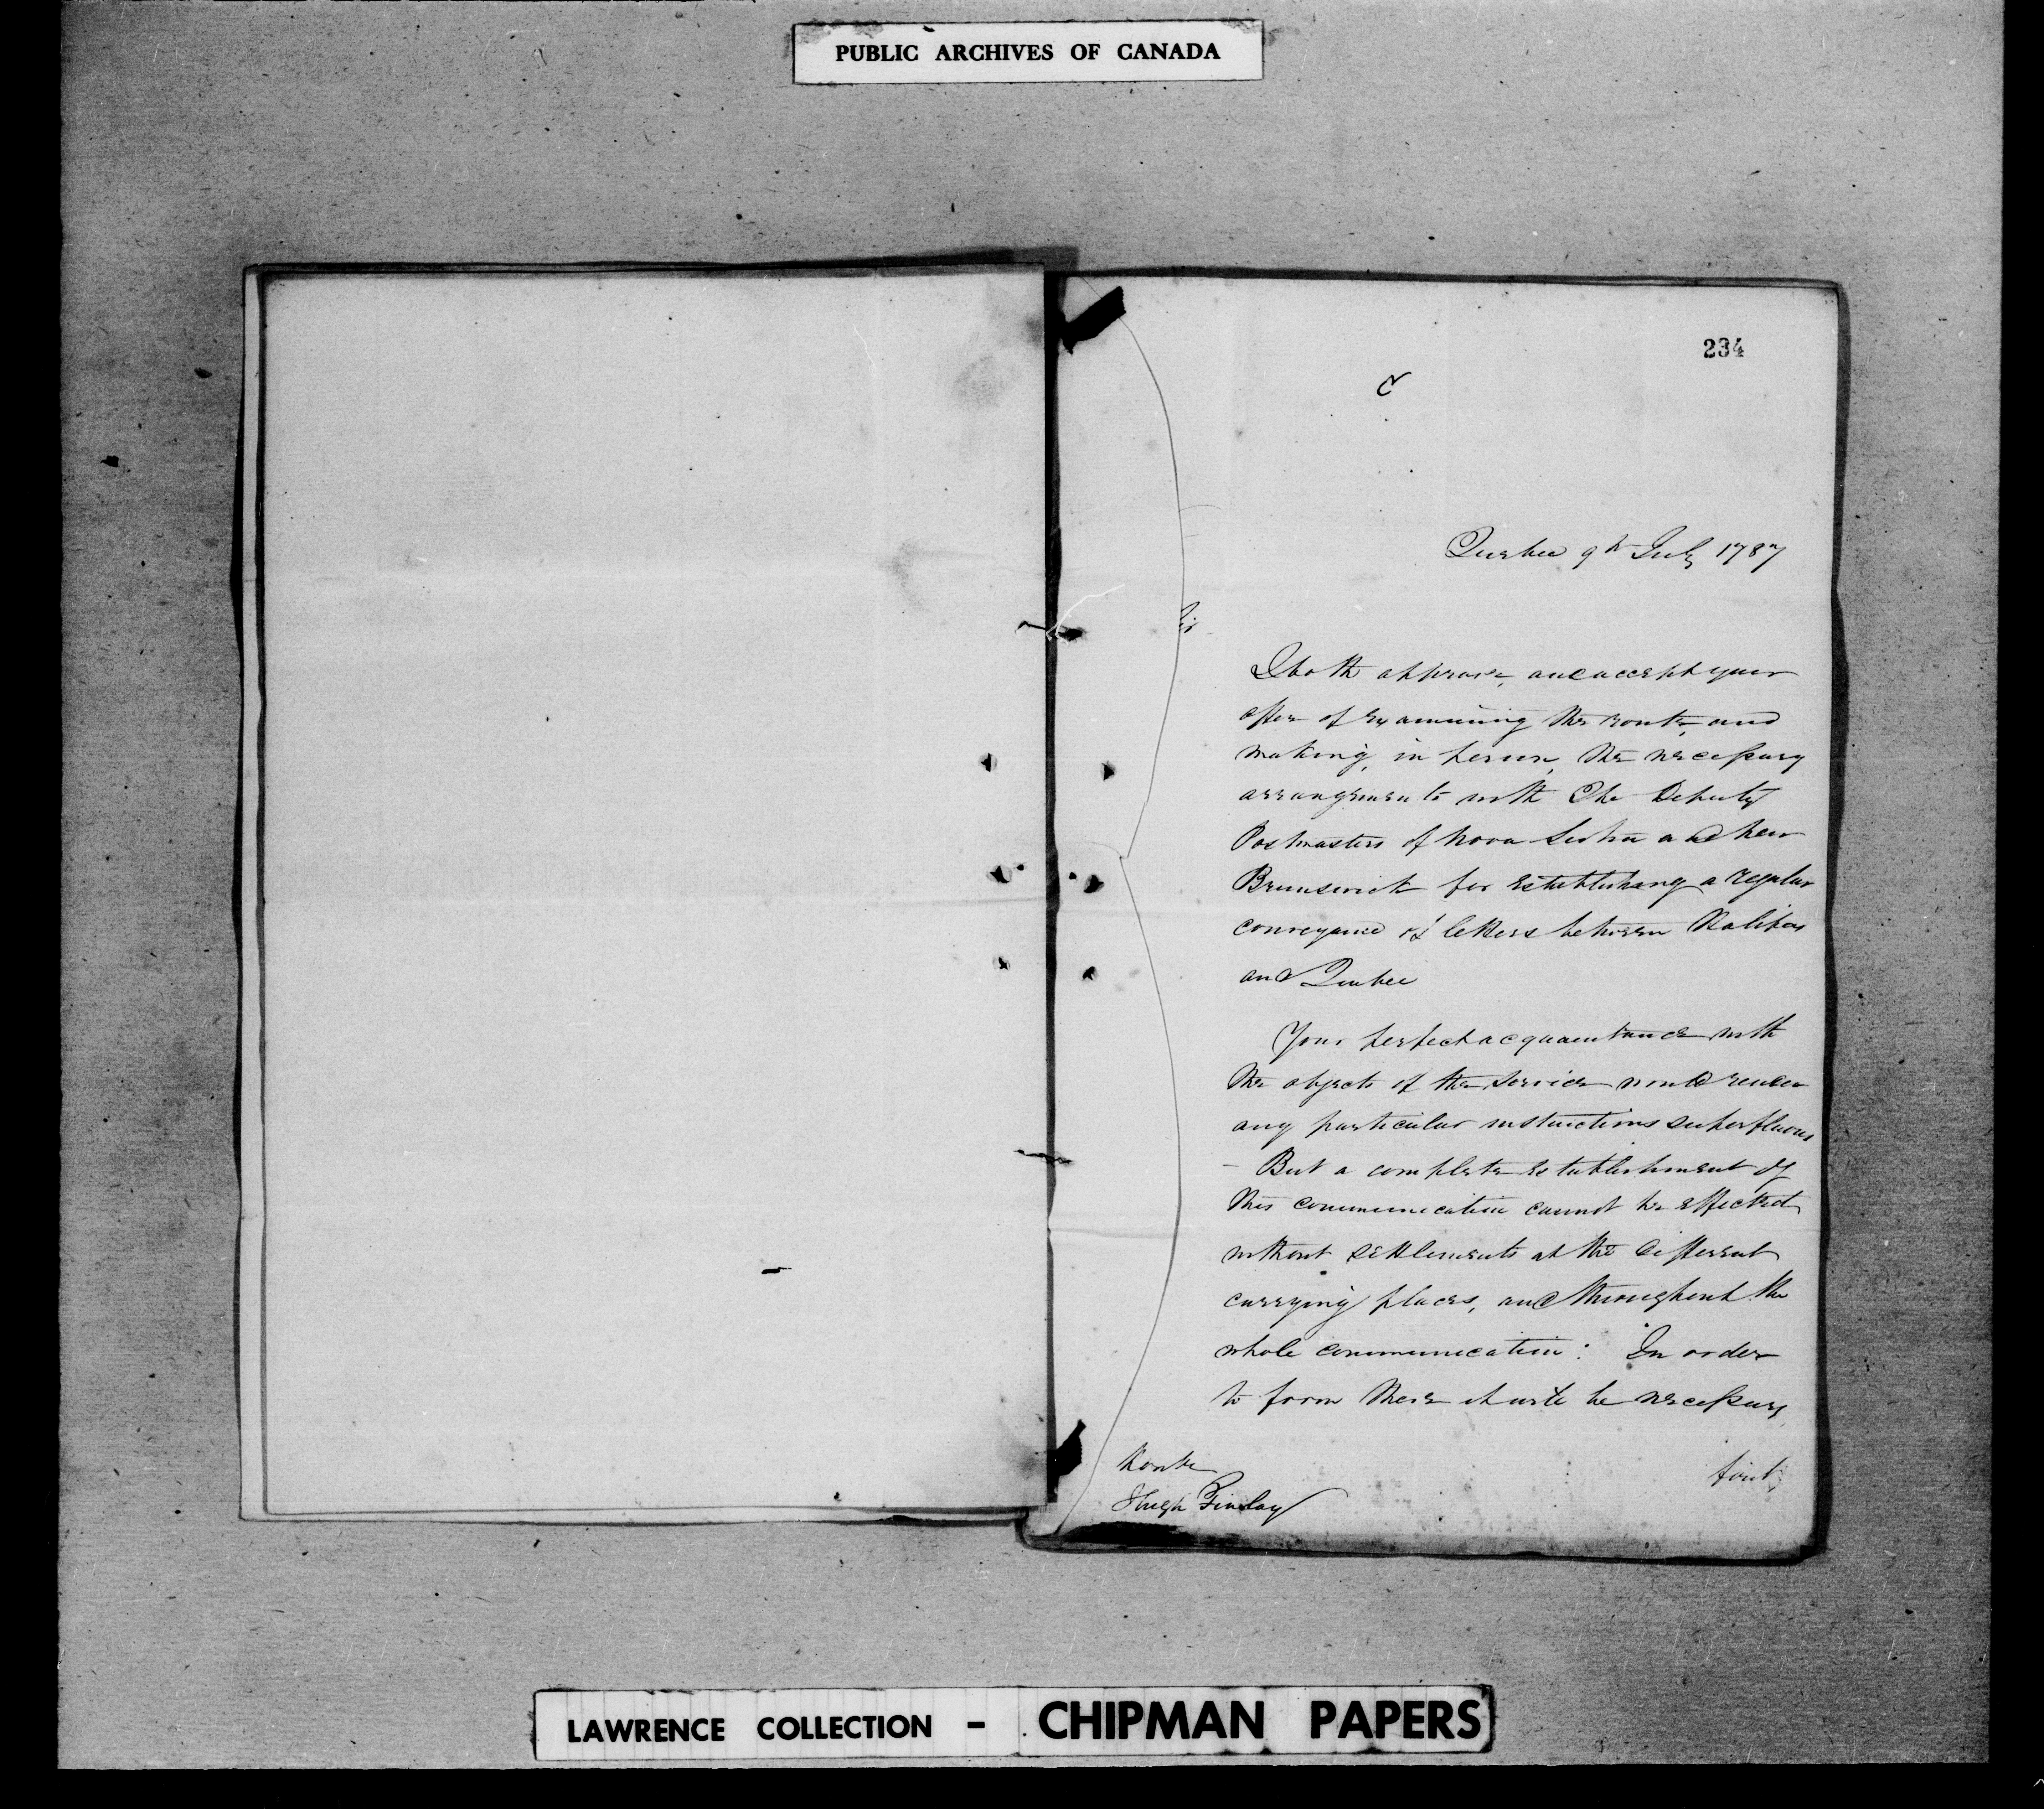 PUBLIC ARCHIVES OF CANADA
234
C
Quebec 9th July 1787
Sir
I both approve, and accept your
offer of examining the route, and
making, in person, the necessary
arrangements with The Deputy
Postmasters of Nova Scotia and New
Brunswick for establishing a regular
conveyance of letters between Halifax
and Quebec
Your perfect acquaintance with
the objects of the service would render
any particular instructions superfluous
- But a complete establishment of
this communication cannot be effected
without settlements at the different
carrying places, and throughout the
whole communication: In order
to form these it will be necessary
first,
Honble
Hugh Finlay
LAWRENCE COLLECTION - CHIPMAN PAPERS